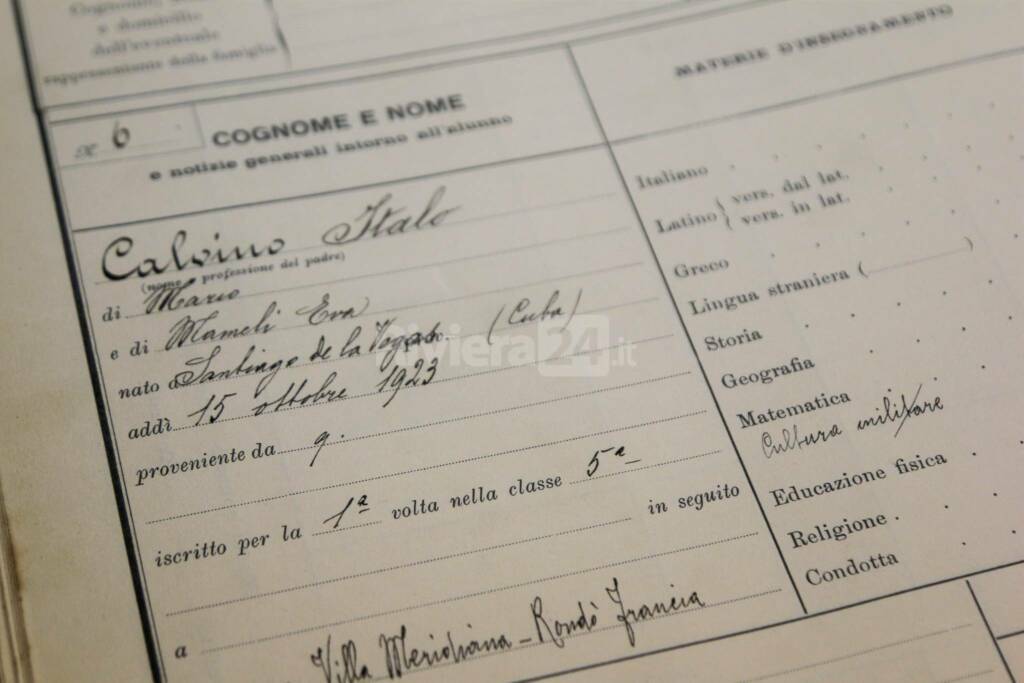 Cognome,
e domicilio
dell'eventuale
rappresentante della famiglia
N. 6
COGNOME E NOME
e notizie generali intorno all'alunno
Calvino Italo
(nome e professione del padre)
di Mario
e di Mameli Eva
nato a Santiago de la Vegas (Cuba)
Riviera24.it
addì 15 ottobre 1923
proveniente da q.
iscritto per la 1ª volta nella classe 5ª
in seguito
a
Villa Meridiana - Rondò Francia
MATERIE D'INSEGNAMENTO
Italiano
Latino { vers. dal lat.
vers. in lat.
Greco
Lingua straniera ( )
Storia
Geografia
Matematica
Cultura militare
Educazione fisica
Religione
Condotta